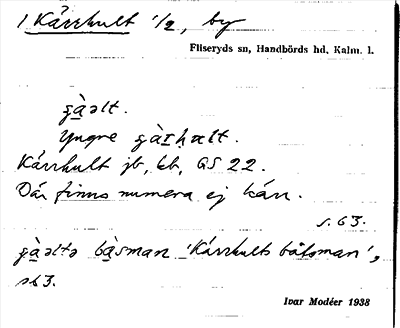 1 Kärrhult 1/2, by
Fliseryds sn, Handbörds hd, Kalm. l.
Yngre
Kärrhult jb, kb, GS 22.
Där finns numera ej kärr.
s. 63.
bàsman 'Kärrhults båtsman',
s63.
Ivar Modéer 1938